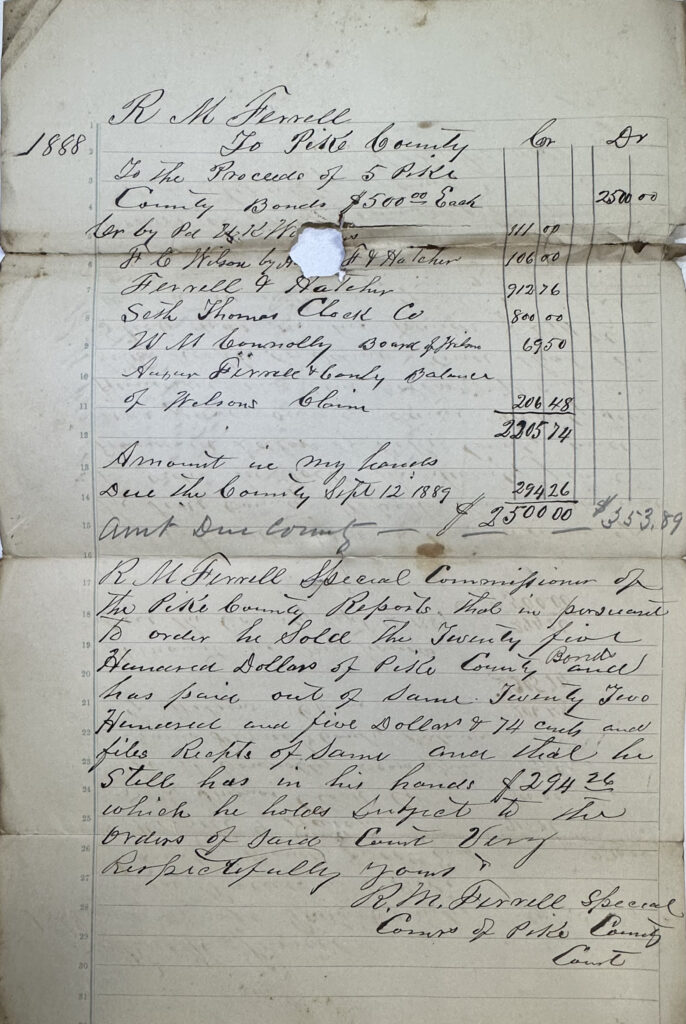 R M Ferrell
1888 To Pike County Cr Dr
To the Proceeds of 5 Pike
County Bonds $500 00 Each 2500 00
Cr by Pd K 111 00
F C Wilson by F & Hatcher 106 00
Ferrell & Hatcher 912 76
Seth Thomas Clock Co 800 00
W M Connolly Board of Wilson 69 50
Ferrell & Conly Balance
of Wilsons Claim 206 48
2205 74
Amount in my hands
Due the County Sept 12 1889 294 26
$ 2500 00 $353.89
Amt Due County
R M Ferrell Special Commissioner of
the Pike County Reports that in persuant
to order he Sold the Twenty five
Hundred Dollars of Pike County Bonds and
has paid out of Same Twenty Two
Hundred and five Dollars & 74 cents and
files Recpts of Same and that he
Still has in his hands $294 26
which he holds Subject to the
orders of Said Court Very
Respectfully yours
R. M. Ferrell Special
Comrs of Pike County
Court